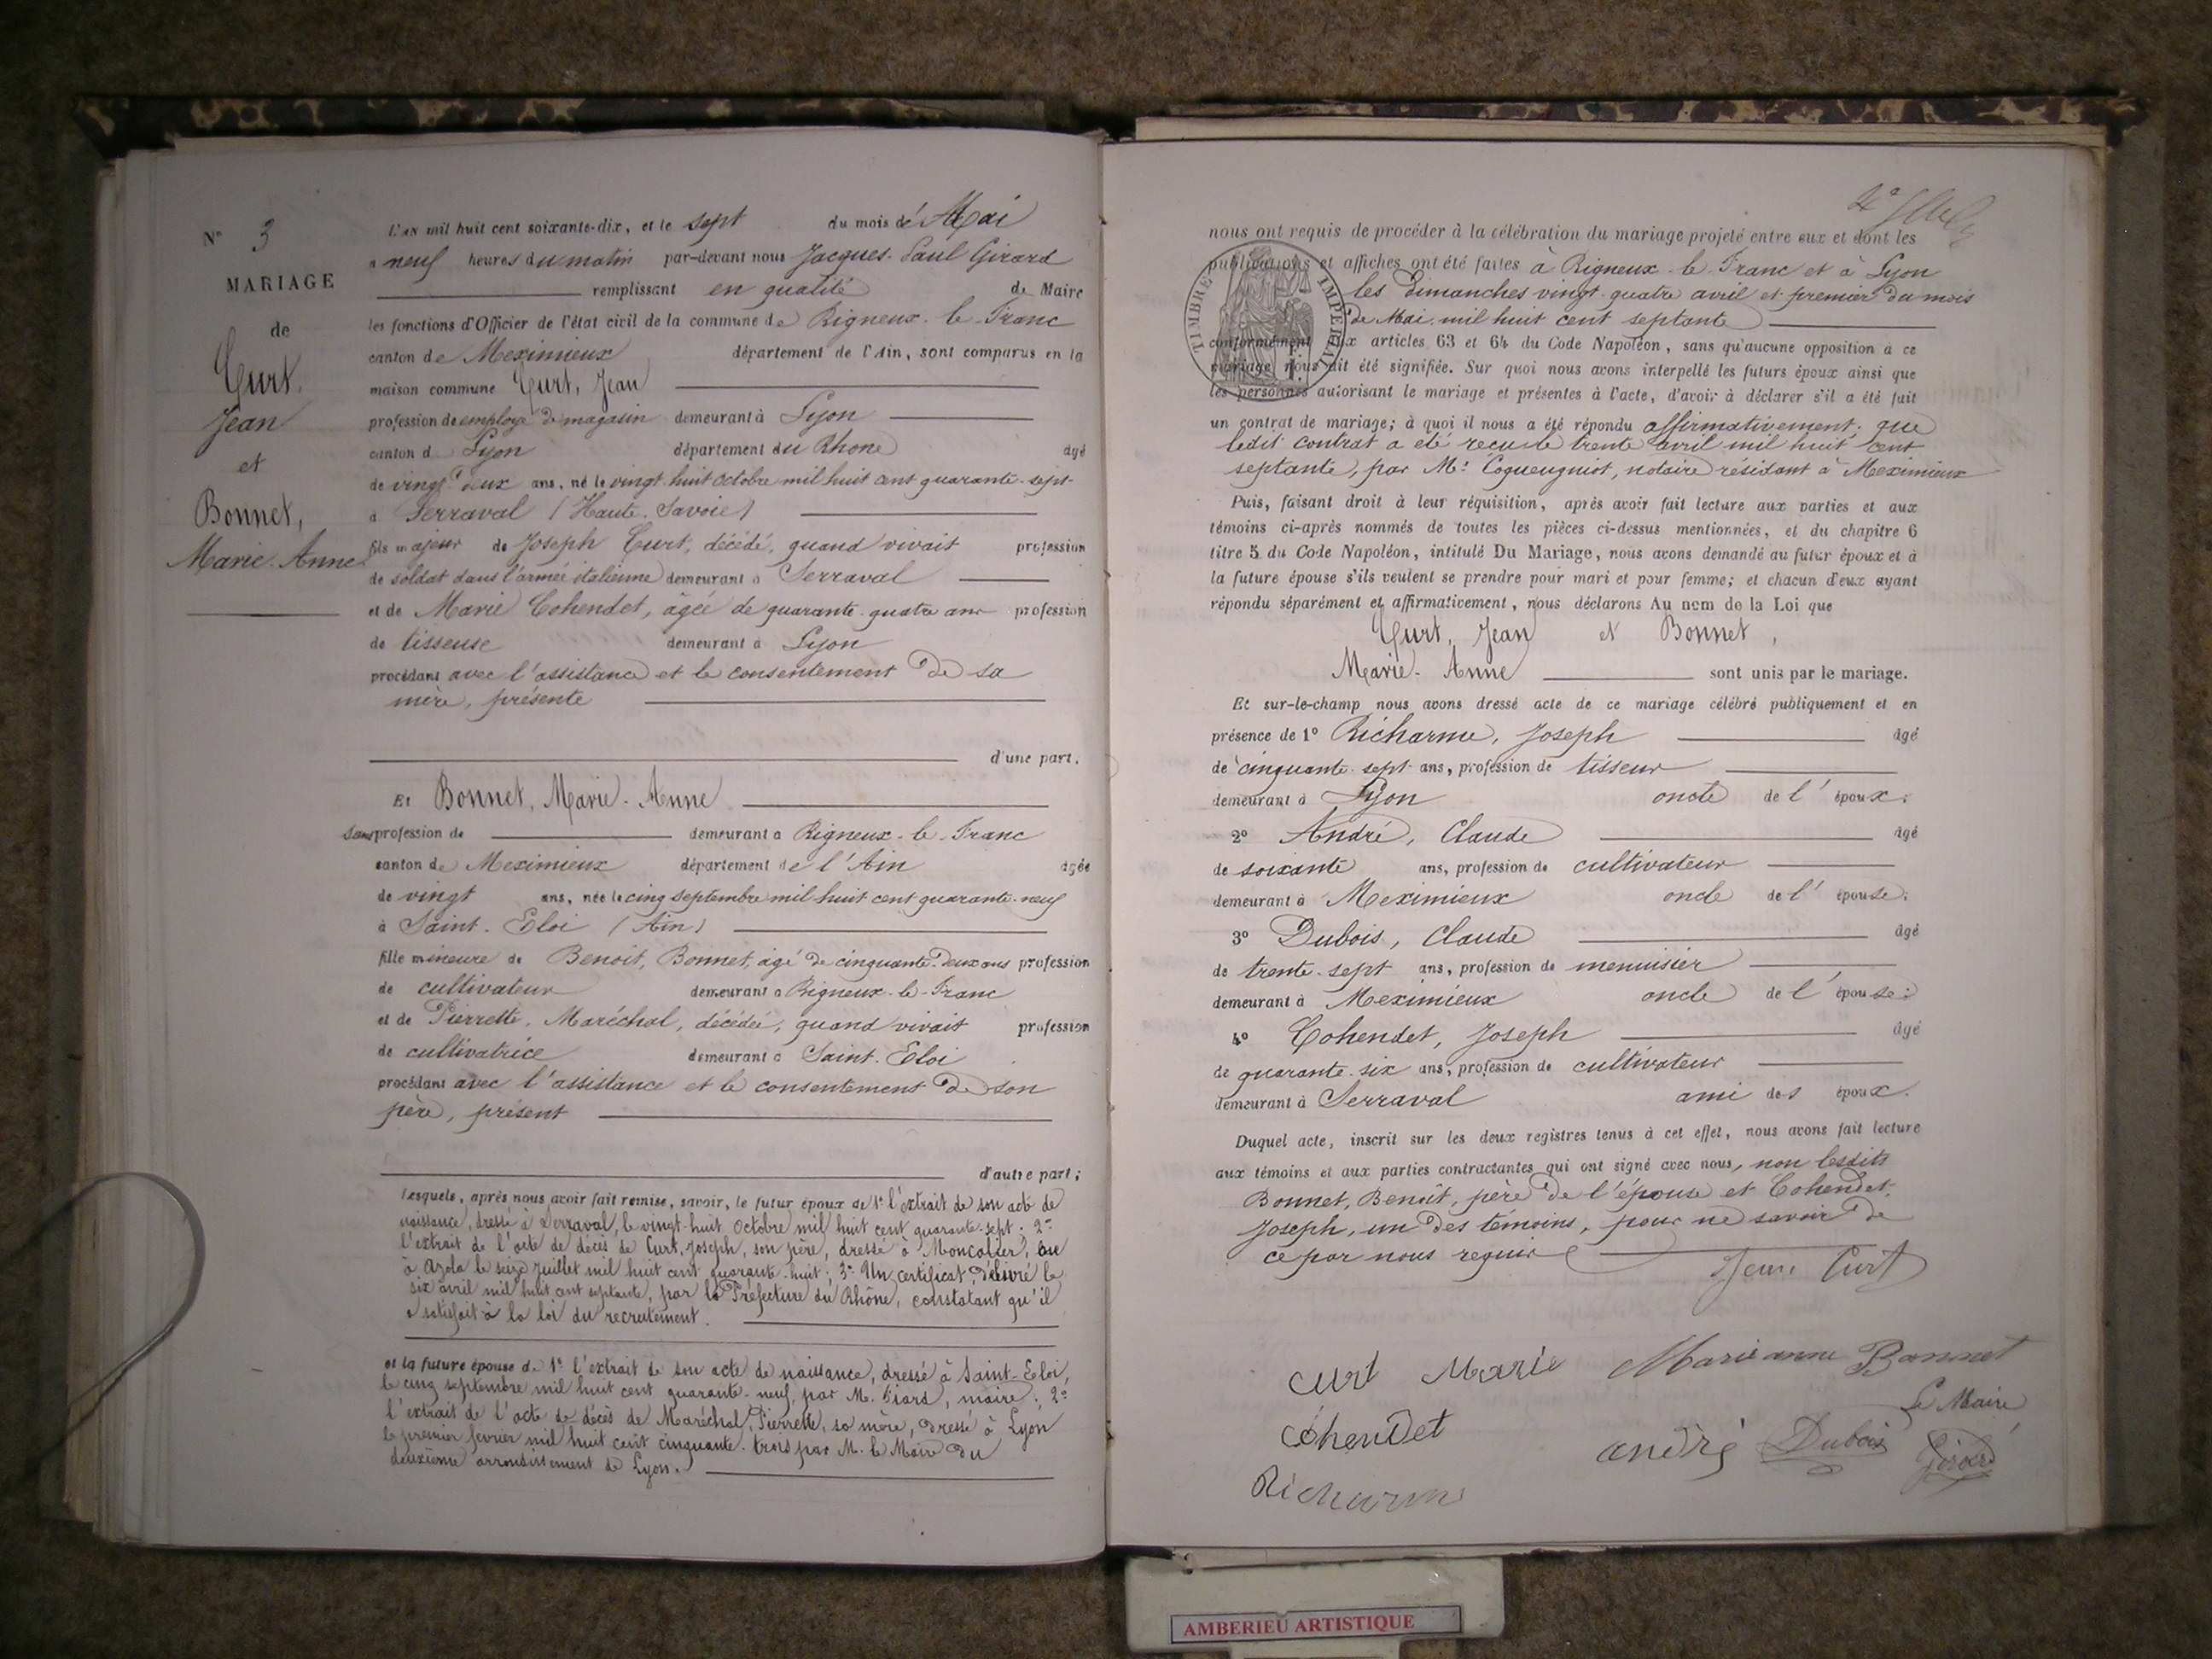 N° 3
MARIAGE
de
Curt,
Jean
et
Bonnet,
Marie-Anne
L'an mil huit cent soixante-dix, et le sept du mois de Mai
à neuf heures du matin par-devant nous Jacques-Paul Girard
remplissant en qualité de Maire
les fonctions d'Officier de l'état civil de la commune de Rigneux-le-Franc
canton de Meximieux département de l'Ain, sont comparus en la
maison commune Curt, Jean
profession de employé de magasin demeurant à Lyon
canton d Lyon département du Rhone âgé
de vingt-deux ans, né le vingt-huit octobre mil huit cent quarante-sept
à Serraval (Haute-Savoie)
fils majeur de Joseph Curt, décédé, quand vivait profession
de soldat dans l'armée italienne demeurant à Serraval
et de Marie Cohendet, âgée de quarante-quatre ans profession
de tisseuse demeurant à Lyon
procédant avec l'assistance et le consentement de sa
mère, présente
d'une part.
Et Bonnet, Marie-Anne
Sans profession de demeurant à Rigneux-le-Franc
canton de Meximieux département de l'Ain âgée
de vingt ans, née le cinq septembre mil huit cent quarante-neuf
à Saint-Eloi (Ain)
fille mineure de Benoit, Bonnet, âgé de cinquante-deux ans profession
de cultivateur demeurant à Rigneux-le-Franc
et de Pierrette, Maréchal, décédée, quand vivait profession
de cultivatrice demeurant à Saint-Eloi
procédant avec l'assistance et le consentement de son
père, présent
d'autre part;
Lesquels, après nous avoir fait remise, savoir, le futur époux de 1° l'extrait de son acte de
naissance, dressé à Serraval, le vingt-huit Octobre mil huit cent quarante-sept; 2°
l'extrait de l'acte de décès de Curt, Joseph, son père, dressé à Moncalier,
à Azola le seize juillet mil huit cent quarante-huit; 3° Un certificat, délivré le
six avril mil huit cent septante, par la Préfecture du Rhône, constatant qu'il
a satisfait à la loi du recrutement.
et la future épouse de 1° l'extrait de son acte de naissance, dressé à Saint-Eloi,
le cinq septembre mil huit cent quarante-neuf, par M. , maire; 2°
l'extrait de l'acte de décès de Maréchal, Pierrette, sa mère, dressé à Lyon
le premier fevrier mil huit cent cinquante-trois par M. le Maire du
deuxième arrondissement de Lyon.
nous ont requis de procéder à la célébration du mariage projeté entre eux et dont les
publications et affiches ont été faites à Rigneux-le-Franc et à Lyon
les dimanches vingt-quatre avril et premier du mois
de Mai mil huit cent septante
conformément aux articles 63 et 64 du Code Napoléon, sans qu'aucune opposition à ce
mariage nous ait été signifiée. Sur quoi nous avons interpellé les futurs époux ainsi que
les personnes autorisant le mariage et présentes à l'acte, d'avoir à déclarer s'il a été fait
un contrat de mariage; à quoi il nous a été répondu affirmativement, que
ledit contrat a été reçu le trente avril mil huit cent
septante, par Me Cogueugniot, notaire résidant à Meximieux
Puis, faisant droit à leur réquisition, après avoir fait lecture aux parties et aux
témoins ci-après nommés de toutes les pièces ci-dessus mentionnées, et du chapitre 6
titre 5 du Code Napoléon, intitulé Du Mariage, nous avons demandé au futur époux et à
la future épouse s'ils veulent se prendre pour mari et pour femme; et chacun d'eux ayant
répondu séparément et affirmativement, nous déclarons Au nom de la Loi que
Curt, Jean et Bonnet,
Marie-Anne sont unis par le mariage.
Et sur-le-champ nous avons dressé acte de ce mariage célébré publiquement et en
présence de 1° Richarme, Joseph âgé
de cinquante-sept ans, profession de tisseur
demeurant à Lyon oncle de l'époux;
2° André, Claude âgé
de soixante ans, profession de cultivateur
demeurant à Meximieux oncle de l'épouse;
3° Dubois, Claude âgé
de trente-sept ans, profession de menuisier
demeurant à Meximieux oncle de l'épouse;
4° Cohendet, Joseph âgé
de quarante-six ans, profession de cultivateur
demeurant à Serraval ami des époux.
Duquel acte, inscrit sur les deux registres tenus à cet effet, nous avons fait lecture
aux témoins et aux parties contractantes qui ont signé avec nous, non lesdits
Bonnet, Benoît, père de l'épouse et Cohendet,
Joseph, un des témoins, pour ne savoir de
ce par nous requis
Jean Curt
Curt Marie Marie anne Bonnet
Cohendet andré Dubois Le Maire
Richarme Girard
TIMBRE IMPERIAL
AMBERIEU ARTISTIQUE